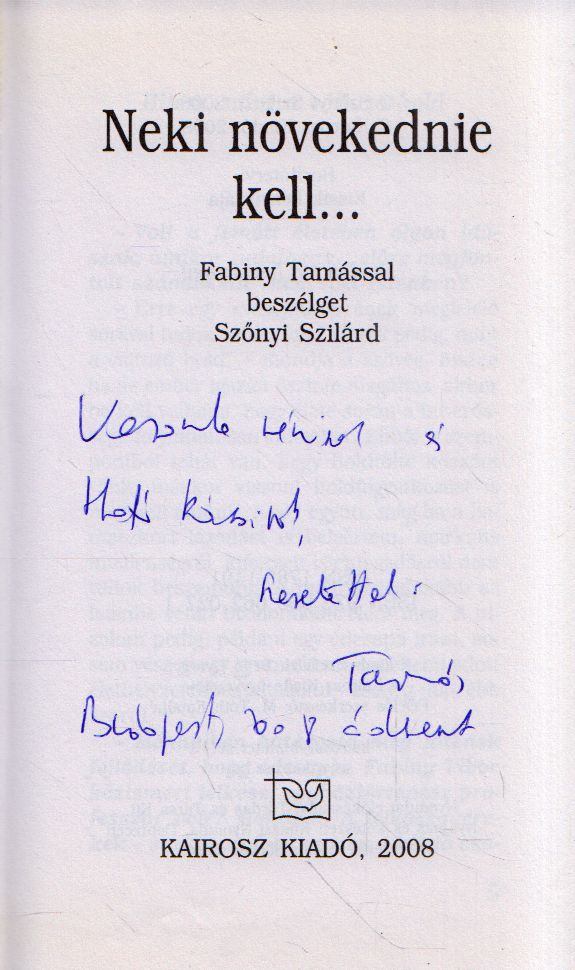 Neki növekednie
kell...
Fabiny Tamással
beszélget
Szőnyi Szilárd
és
szeretettel:
Tamás
Budapest, 2008 ádvent
KAIROSZ KIADÓ, 2008